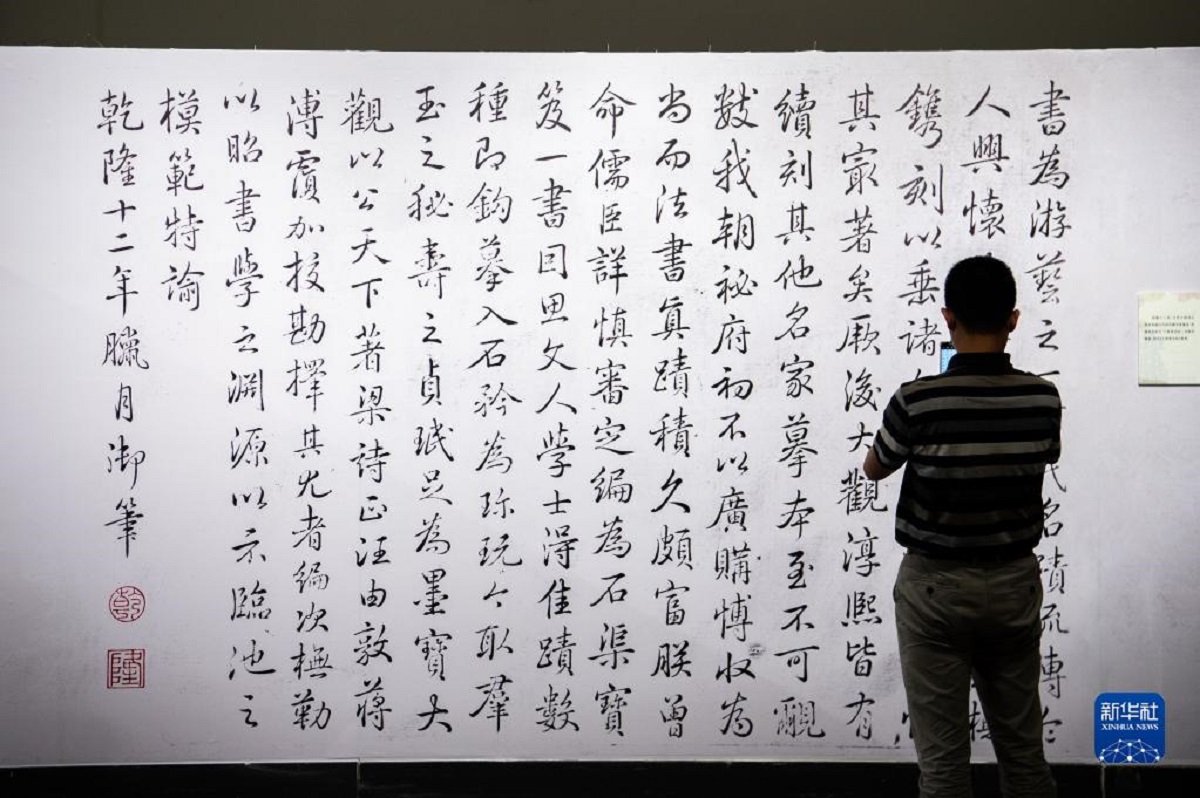 書為游藝之一代名蹟流傳令
人興懷橅
鐫刻以垂諸
其最著矣厥後大觀淳熙皆有
續刻其他名家摹本至不可覼
數我朝秘府初不以廣購博收為
尚而法書真蹟積久頗富朕曾
命儒臣詳慎審定編為石渠寶
笈一書因思文人學士得佳蹟數
種即鉤摹入石矜為珍玩今取羣
玉之秘壽之貞珉足為墨寶大
觀以公天下著梁詩正汪由敦蔣
溥覆加挍勘擇其尤者編次橅勒
以昭書學之淵源以示臨池之
模範特諭
乾隆十二年臘月御筆
乾
隆
新华社
XINHUA NEWS